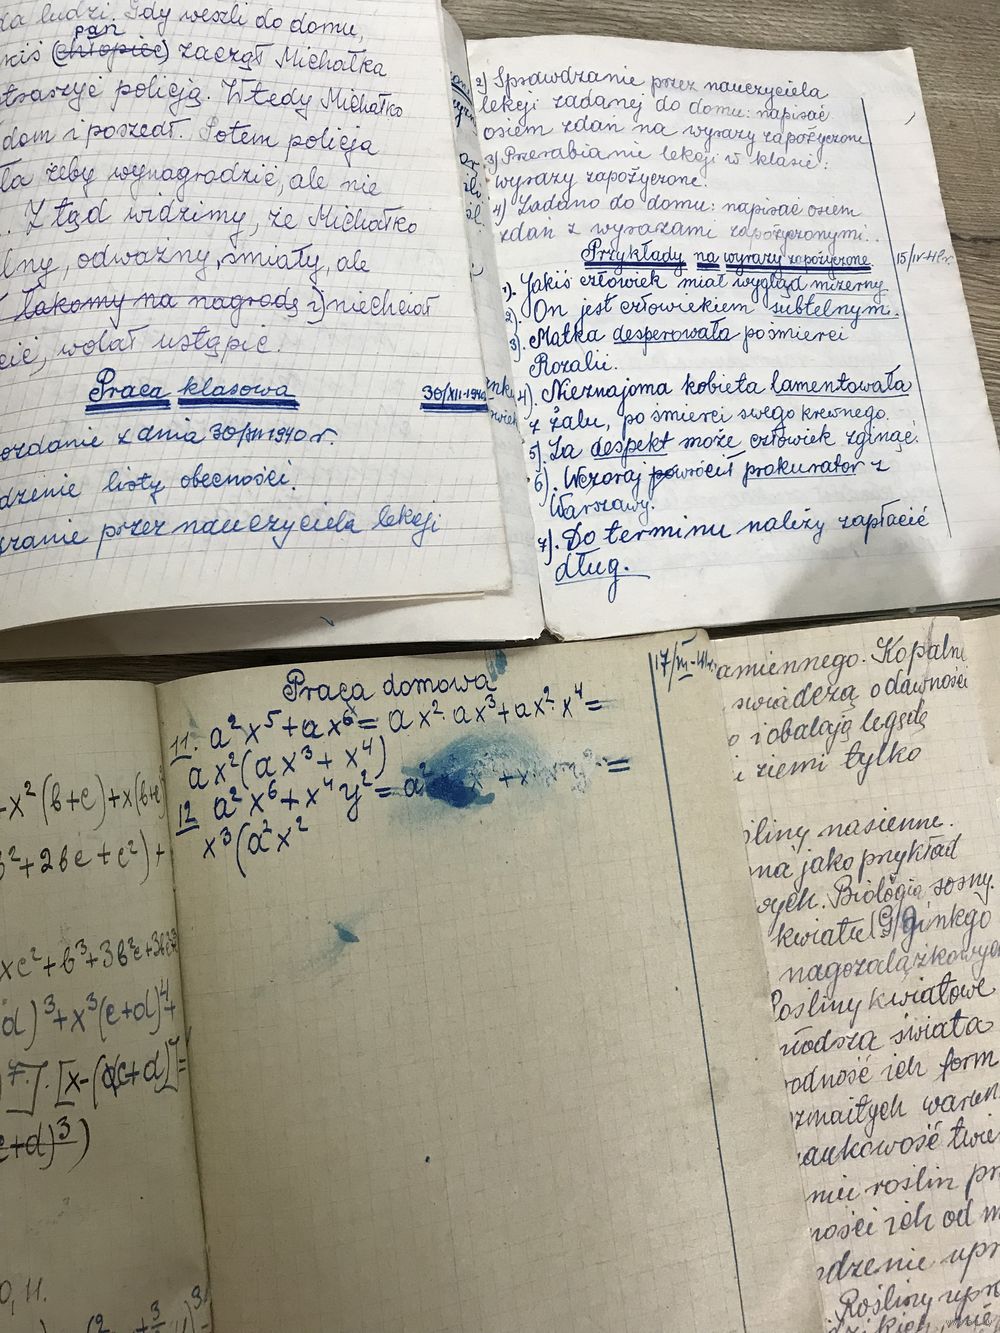 da ludzi. Gdy weszli do domu,
pan
kiś (chłopiec) zaczął Michałka
straszyć policją. Wtedy Michałko
dom i poszedł. Potem policja
ła żeby wynagrodzić, ale nie
Z tąd widzimy, że Michałko
lny, odważny, śmiały, ale
łakomy na nagrodę i niechciał
cić, wolał ustąpić.
Praca klasowa 30/XII-1940
ozdanie z dnia 30/XII 1940 r.
dzenie listy obecności.
zanie przez nauczyciela lekcji
2) Sprawdzanie przez nauczyciela
lekcji zadanej do domu: napisać
osiem zdań na wyrazy zapożyczone
3) Przerabianie lekcji w klasie:
wyrazy zapożyczone.
4) Zadano do domu: napisać osiem
zdań z wyrazami zapożyczonymi.
Przykłady na wyrazy zapożyczone 15/IV-41r.
1). Jakiś człowiek miał wygląd mizerny
2). On jest człowiekiem subtelnym.
3). Matka desperowała po śmierci
Rozalii.
4). Nieznajoma kobieta lamentowała
z żalu, po śmierci swego krewnego.
5). Za despekt może człowiek zginąć.
6). Wczoraj powrócił prokurator z
Warszawy.
7). Do terminu należy zapłacić
dług.
Praca domowa 17/III-41r.
11. a²x⁵+ax⁶= ax²·ax³+ax²·x⁴=
ax²(ax³+x⁴)
12 a²x⁶+x⁴y²= a² =
x³(a²x²
+x²(b+c)+x(b+c)
b²+2bc+c²)+
xc²+b³+3b²c+
d)³+x³(c+d)⁴+
7.]·[x-(c+d)]=
c+d)³)
0, 11.
amiennego. Kopalni
świadczą o dawności
i obalają legędę
ziemi tylko
śliny nasienne.
na jako przykład
ych. Biologia sosny.
kwiatu (G) ginkgo
nagozalążkowych
Rośliny kwiatowe
młodsza świata
odność ich form
zmaitych warun
aukowość twie
nie roślin pr
ności ich od m
dzenie upr
Rośliny upra